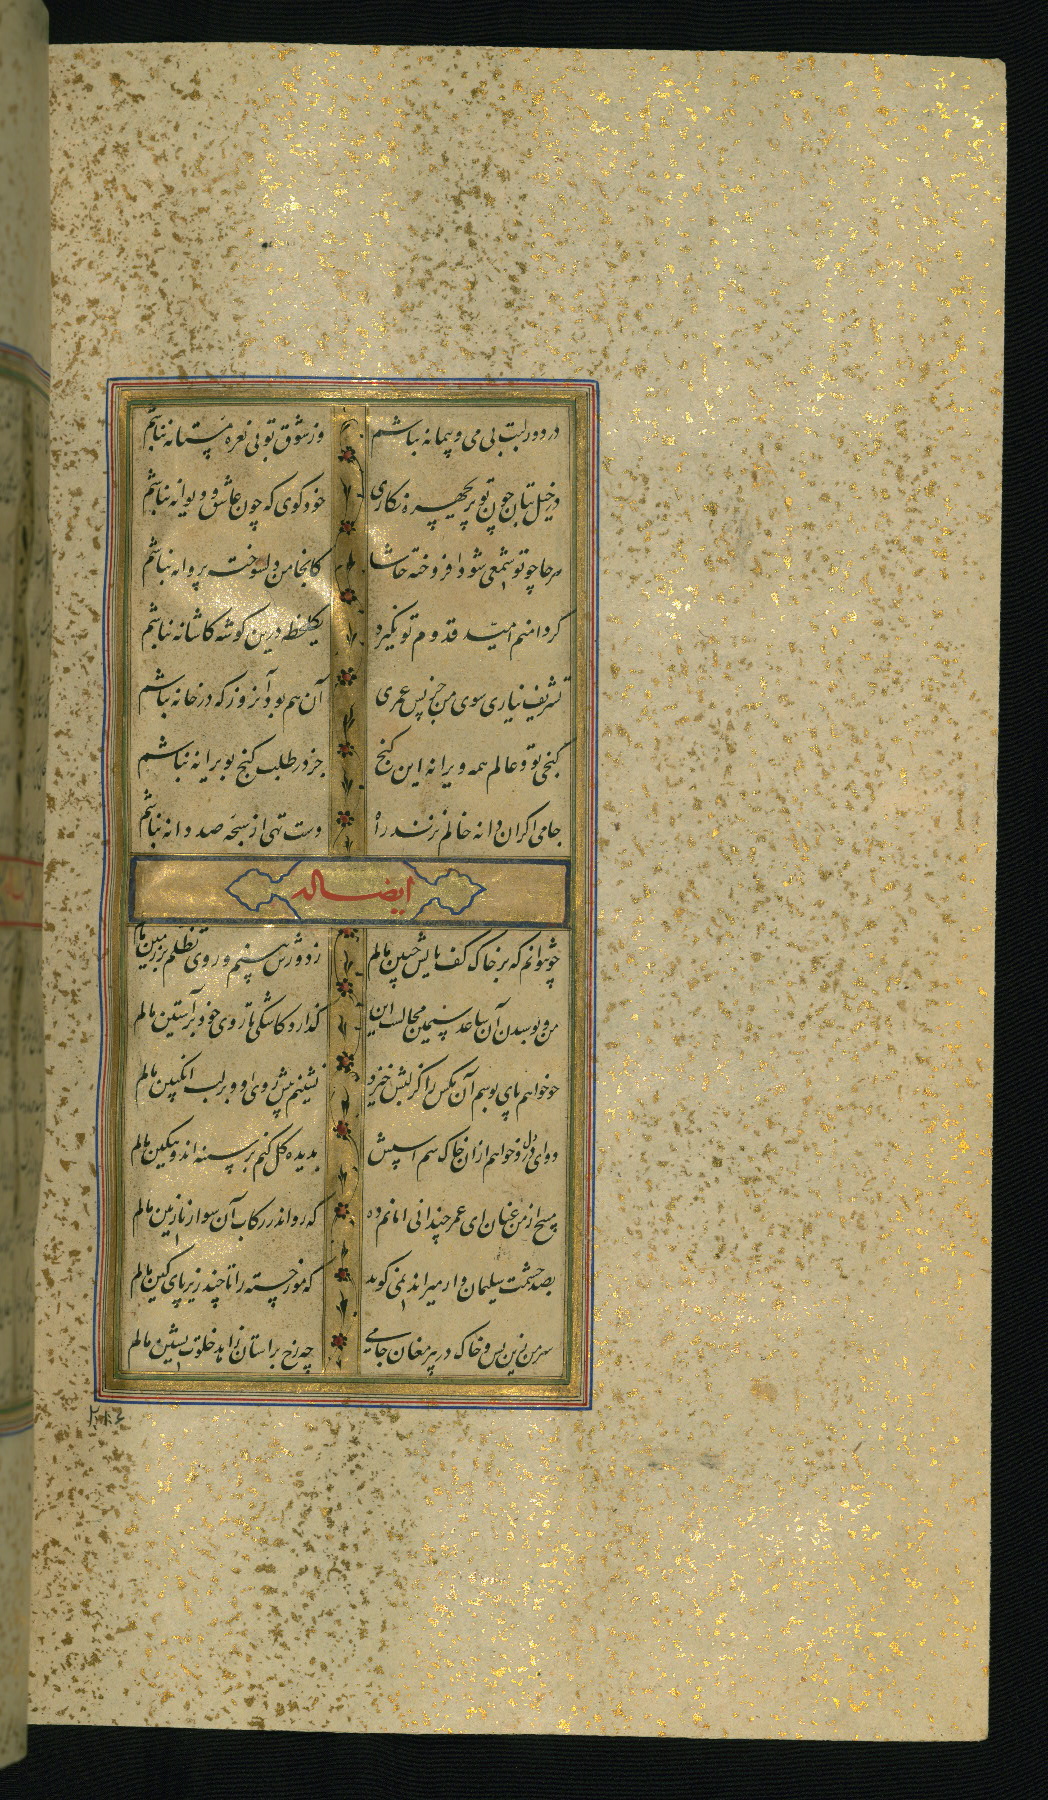 در دور لبت بی می و پیمانه نباشم وز شوق تو بی نعره مستانه نباشم
در خیل بتان چون تو پریچهره نگاری خود گوی که چون عاشق و دیوانه نباشم
هر جا چو تو شمعی شود افروخته حاشا کانجا من دلسوخته پروانه نباشم
گر دامنم امید قدوم تو نگیرد یکلحظه درین گوشه کاشانه نباشم
تشریف نیاری سوی من جز پس عمری آن هم بود آنروز که در خانه نباشم
گنجی تو و عالم همه ویرانه این گنج جز در طلب گنج بویرانه نباشم
جامی اگر آن دانه خالم نزند راه دست تهی از سبحه صد دانه نباشم
ایضا له
چو نتوانم که بر خاک کف پایش جبین مالم ز دورش بینم و روی تظلم بر زمین مالم
من و بوسیدن آن ساعد سیمین محالست این گذارد کاشکی تا روی خود بر آستین مالم
چو خواهم پای بوسم آن مگس را کز لبش خیزد نشینم پیش روی او و بر لب انگبین مالم
دوای درد خواهم از آن خاک سم اسپش بدیده گل کنم بر سینه اندوهگین مالم
مپیچ از من عنان ای عمر چندانی امانم ده که رو اندر رکاب آن سوار نازنین مالم
بصد حشمت سلیمان وار میراند نمی گوید که مور خسته را تا چند زیر پای کین مالم
سر من زین پس و خاک در پیر مغان جامی چه رخ بر آستان زاهد خلوت نشین مالم